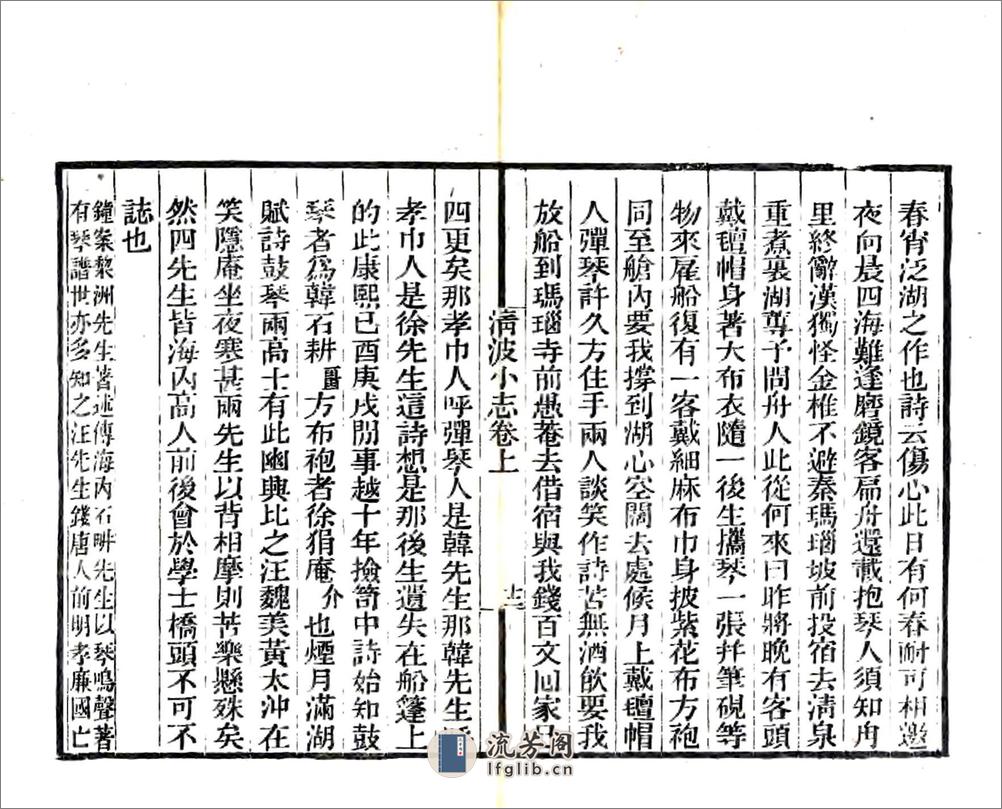 春宵泛湖之作也詩云傷心此日有何春耐可相邀
夜向晨四海難逢磨鏡客扁舟還載抱琴人須知舟
里終辭漢獨怪金椎不避秦瑪瑙坡前投宿去清泉
重煮裏湖尊予問舟人此從何來曰昨將晚有客頭
戴氊帽身著大布衣隨一後生攜琴一張幷筆硯等
物來雇船復有一客戴細麻布巾身披紫花布方袍
同至艙內要我撐到湖心空闊去處候月上戴氊帽
人彈琴許久方住手兩人談笑作詩苦無酒飲要我
放船到瑪瑙寺前愚菴去借宿與我錢百文回家已
清波小志卷上
四更矣那孝巾人呼彈琴人是韓先生那韓先生呼
孝巾人是徐先生這詩想是那後生遺失在船篷上
的此康熙己酉庚戌閒事越十年撿笥中詩始知鼓
琴者爲韓石耕畕方布袍者徐狷庵介也煙月滿湖
賦詩鼓琴兩高士有此幽興比之汪魏美黃太沖在
笑隱庵坐夜寒甚兩先生以背相摩則苦樂懸殊矣
然四先生皆海內高人前後會於學士橋頭不可不
誌也
鐘案黎洲先生著述傳海內石畊先生以琴鳴聲著
有琴譜世亦多知之汪先生錢唐人前明孝廉國亡
流芳阁
lfglib.cn